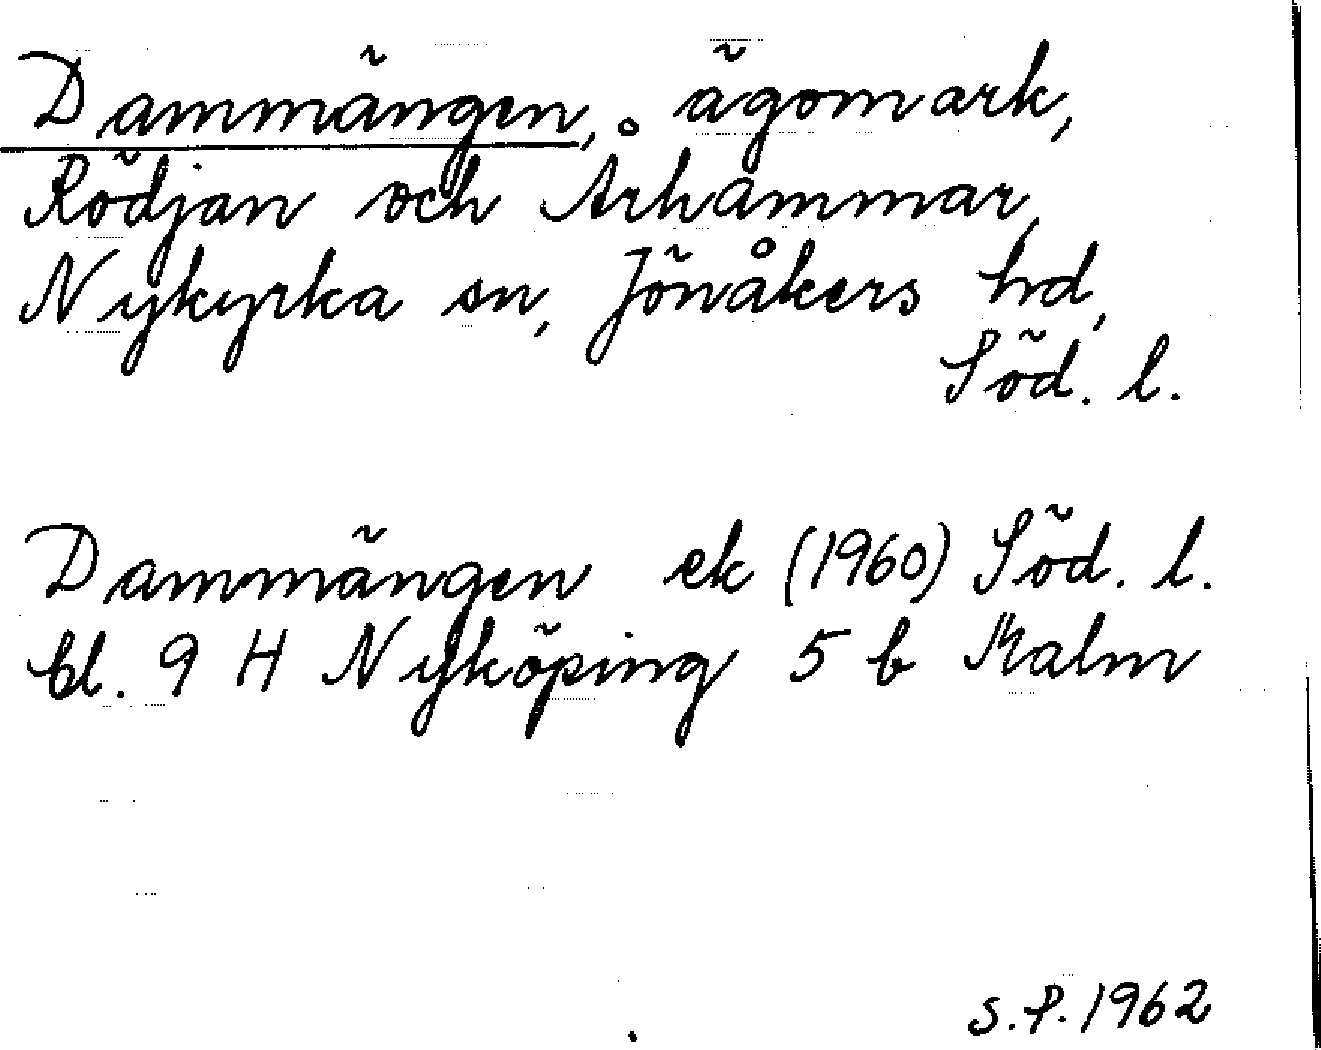 Dammängen, ägomark,
Rödjan och Århammar,
Nykyrka sn, Jönåkers hd,
Söd. l.
Dammängen ek (1960) Söd. l.
bl. 9 H Nyköping 5 b Malm
S.P. 1962